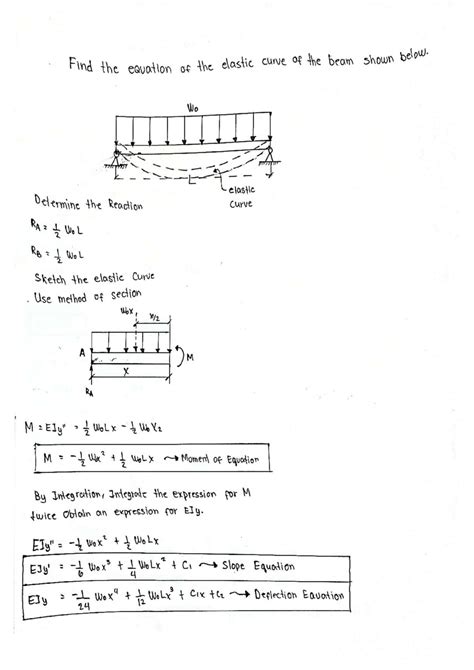 Find the equation of the elastic curve of the beam shown below.
Wo
L
elastic
curve
Determine the Reaction
RA = 1/2 WoL
RB = 1/2 WoL
Sketch the elastic Curve
. Use method of section
Wox
x/2
A
M
X
RA
M = EIy" = 1/2 WoLx - 1/2 WoX2
M = -1/2 Wx² + 1/2 WoLx → Moment of Equation
By Integration, Integrate the expression for M
twice Obtain an expression for EIy.
EIy" = -1/2 Wox² + 1/2 WoLx
EIy' = -1/6 Wox³ + 1/4 WoLx² + C1 → Slope Equation
EIy = -1/24 Wox⁴ + 1/12 WoLx³ + C1x + C2 → Deflection Equation